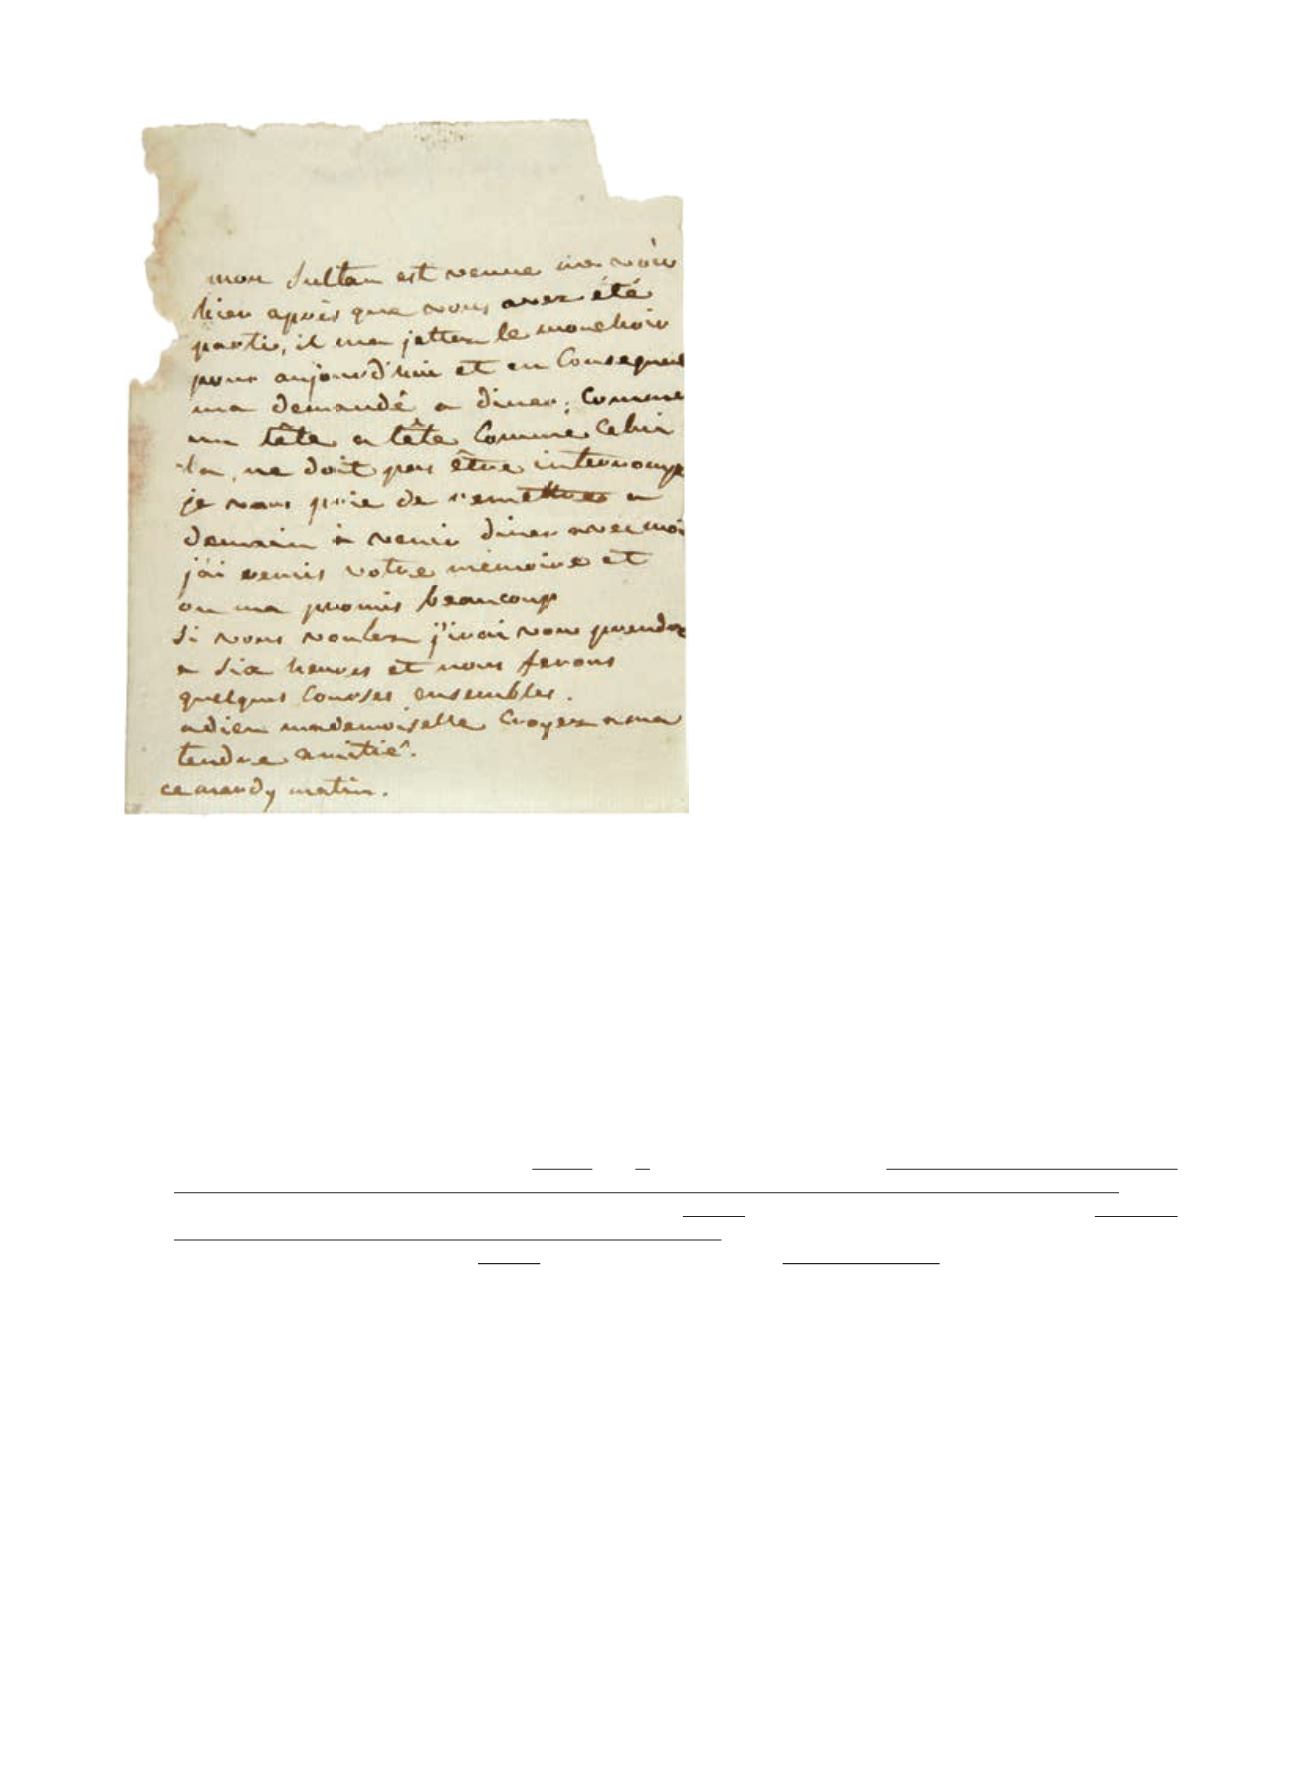 mon Sultan est venue me voir
hier après que vous avez été
parti, il ma jetter le mouchoir
pour aujourd'hui et en Consequen
ma demandé a diner; Comme
un tête a tête Comme Celui
la, ne doit pas être interromp
je vous prie de remettre a
demain à venir diner avec moi
j'ai remis votre mémoire et
on ma promis beaucoup
Si vous voulez j'irai vous prendre
a Six heures et nous ferons
quelques Courses ensembles.
adieu mademoiselle Croyez a ma
tendre amitié.
ce mardy matin.